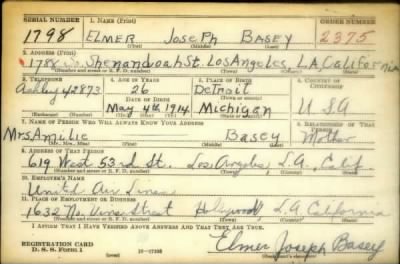 SERIAL NUMBER 1. NAME (Print) ORDER NUMBER
1798 ELMER JOSEPH BASEY 2375
(First) (Middle) (Last)
2. ADDRESS (Print)
1786 So. Shenandoah St. Los Angeles, L.A. California
(Number and street or R. F. D. number) (Town) (County) (State)
3. TELEPHONE 4. AGE IN YEARS 5. PLACE OF BIRTH 6. COUNTRY OF CITIZENSHIP
Ashley 42873 26 Detroit
DATE OF BIRTH (Town or county)
May 4th, 1914. Michigan U S A
(Exchange) (Number) (Mo.) (Day) (Yr.) (State or country)
7. NAME OF PERSON WHO WILL ALWAYS KNOW YOUR ADDRESS 8. RELATIONSHIP OF THAT PERSON
Mrs Amilie Basey Mother
(Mr., Mrs., Miss) (First) (Middle) (Last)
9. ADDRESS OF THAT PERSON
619 West 53rd St. Los Angeles, L.A., Calif.
(Number and street or R. F. D. number) (Town) (County) (State)
10. EMPLOYER'S NAME
United Air Lines
11. PLACE OF EMPLOYMENT OR BUSINESS
1632 No. Vine Street Hollywood L A California
(Number and street or R. F. D. number) (Town) (County) (State)
I AFFIRM THAT I HAVE VERIFIED ABOVE ANSWERS AND THAT THEY ARE TRUE.
REGISTRATION CARD
D. S. S. Form 1
Elmer Joseph Basey